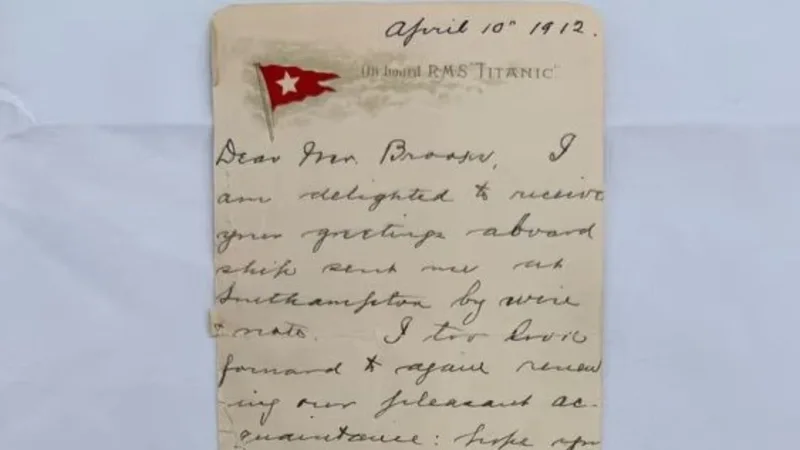 April 10" 1912.
On board R.M.S "TITANIC"
Dear Mr. Brooks, I
am delighted to receive
your greetings aboard
ship sent me at
Southampton by wire
& note. I too look
forward to again renew
ing our pleasant ac-
quaintance: hope you